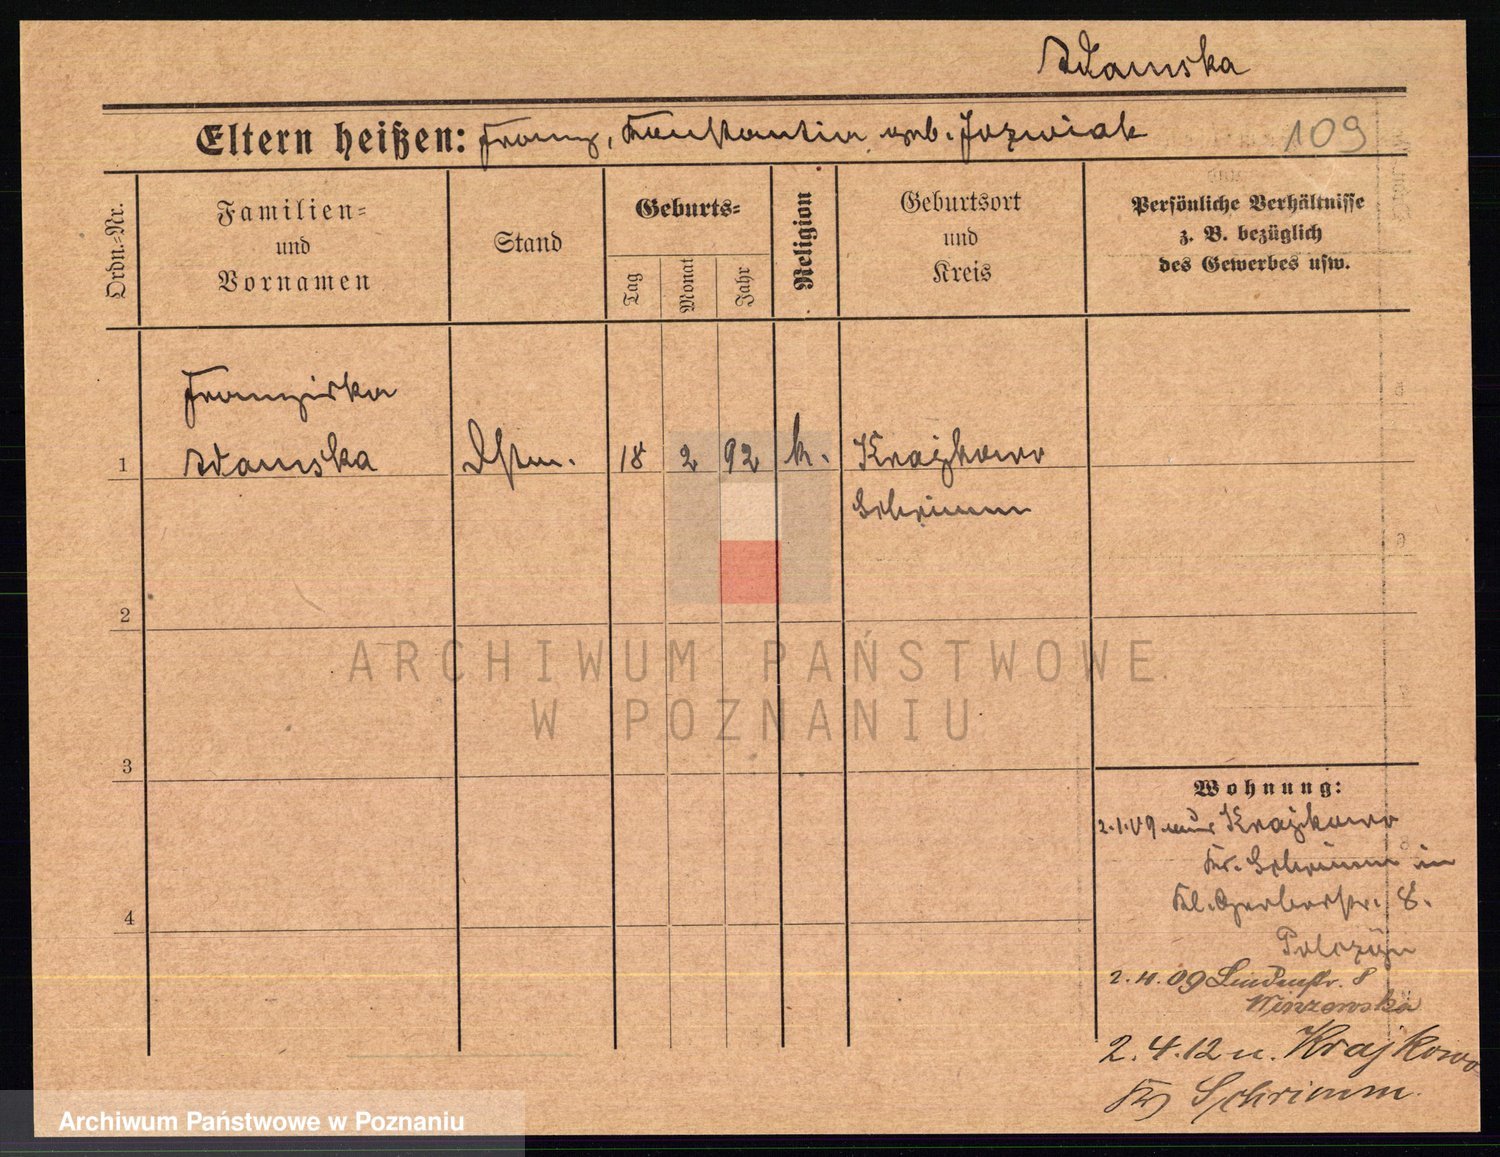 Adamska
Eltern heißen: Franz, Konstantin geb. Jozwiak
109
Ordn.-Nr.
Familien-
und
Vornamen
Stand
Geburts-
Tag
Monat
Jahr
Religion
Geburtsort
und
Kreis
Persönliche Verhältnisse
z. B. bezüglich
des Gewerbes usw.
Franziska
1 Adamska Dstm. 18 2 92 k. Krajkowo
Schrimm
2
ARCHIWUM PAŃSTWOWE
W POZNANIU
3
Wohnung:
2.1.09 aus Krajkowo
Kr. Schrimm in
Kl. Gerberstr. 8.
4
2.4.09 Lindenstr. 8
2.4.12 n. Krajkowo
Kr Schrimm.
Archiwum Państwowe w Poznaniu